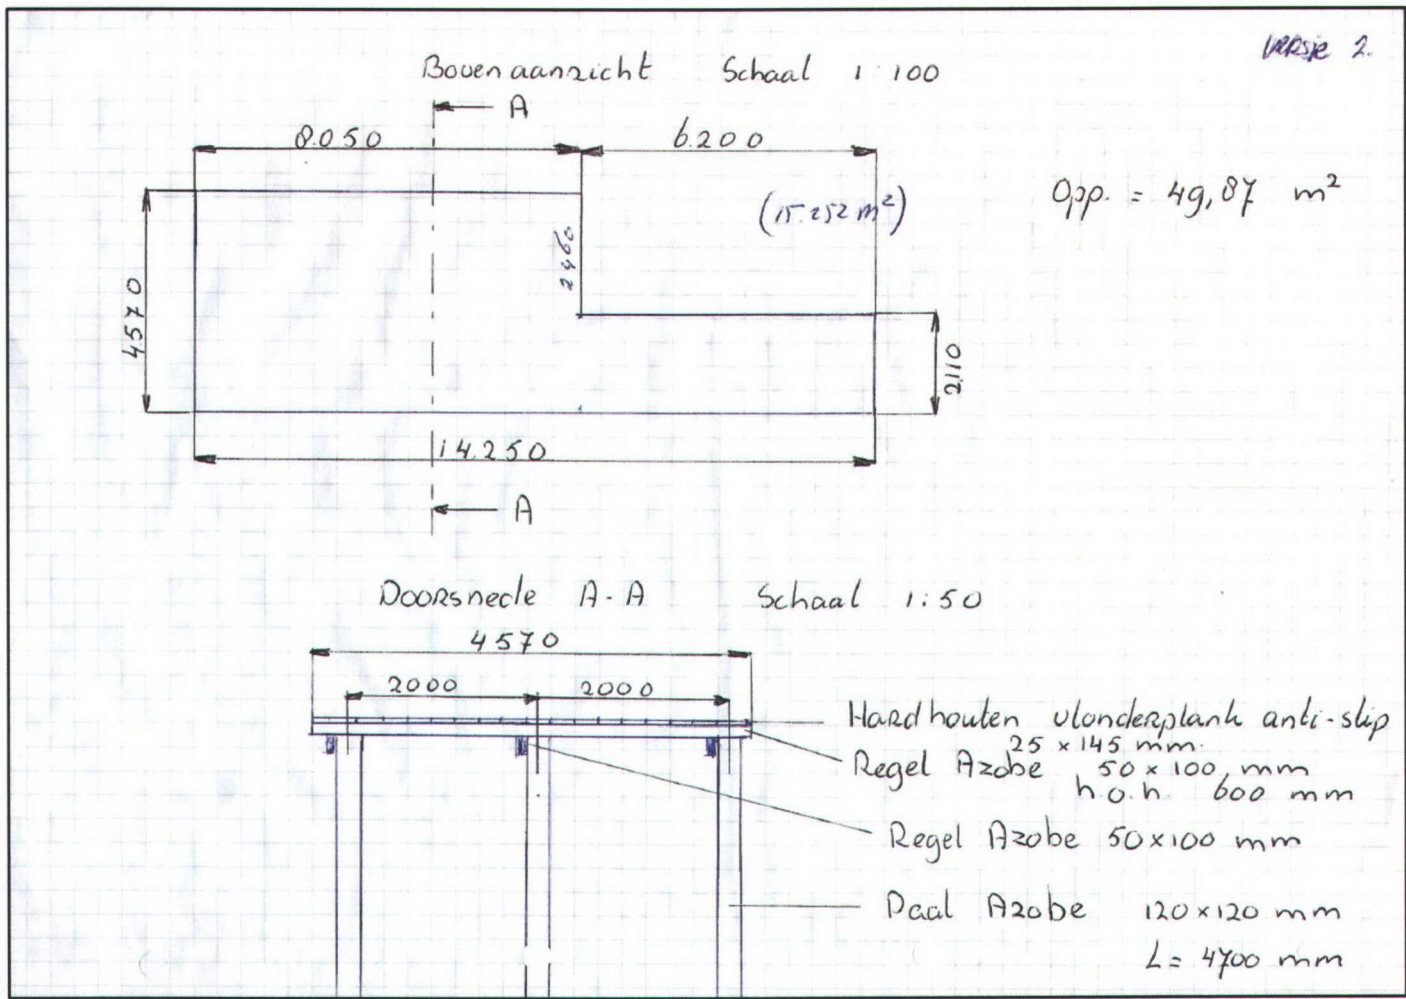 versie 2.
Bovenaanzicht Schaal 1:100
A
8.050
6.200
Opp. = 49,87 m²
(15.252 m²)
2460
4570
2110
14.250
A
Doorsnede A-A Schaal 1:50
4570
2000 2000
Hardhouten vlonderplank anti-slip
25 x 145 mm.
Regel Azobe 50 x 100 mm
h.o.h. 600 mm
Regel Azobe 50 x 100 mm
Paal Azobe 120 x 120 mm
L = 4700 mm